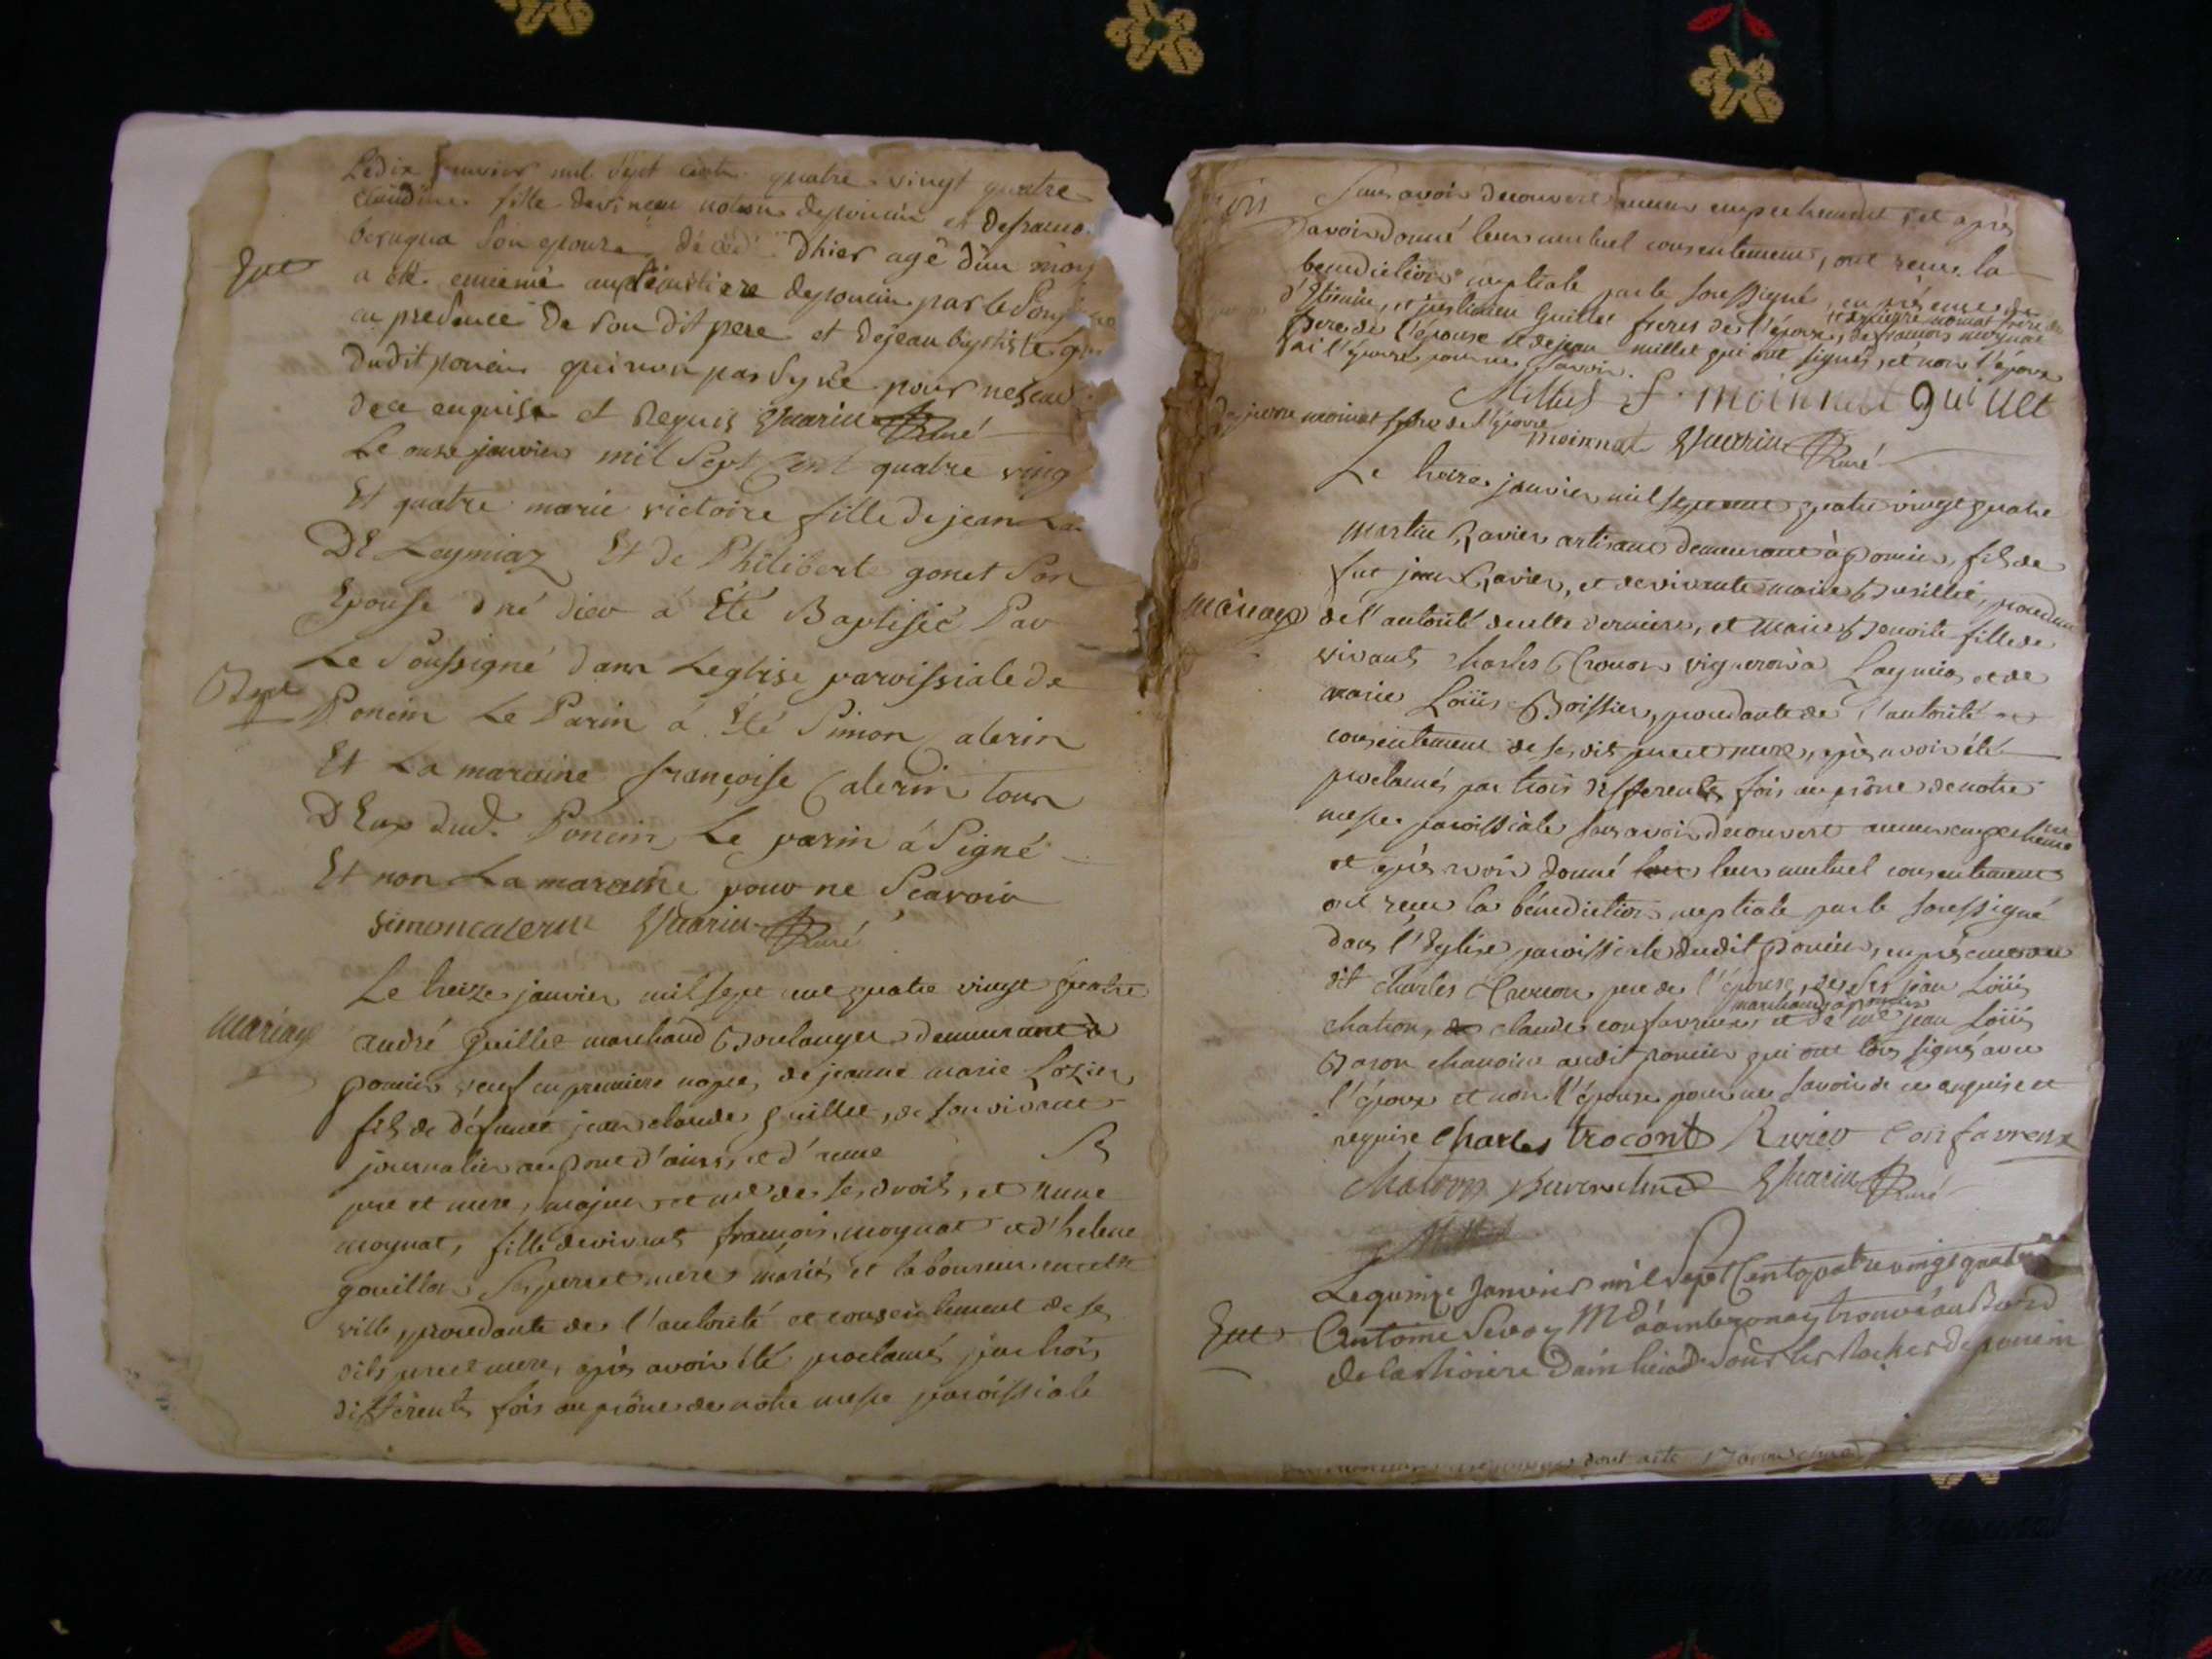 Le dix janvier mil sept cent quatre vingt quatre
Claudine fille de vincent de poncin et de
son epouse décédé d'hier agé d'un mois
Ent
a été enterré au cimetiere de poncin par le
en presence de son dit pere et de jean baptiste
dudit poncin qui n'on pas signé pour ne
de ce enquis et requis Guarin Curé
Le onze janvier mil Sept Cent quatre ving
Et quatre marie victoire fille de jean
DE Leymiaz Et de Philiberte gonet Son
Epouse dné dieu a Eté Baptisée Par
Le Soussigné dans Leglise paroissiale de
Bapt
Poncin Le Parin a Eté Simon Calerin
Et La maraine françoise Calerin tous
DEux dud. Poncin, Le parin a Signé
Et non La maraine pour ne Scavoir
simon calerin Guarin Curé
Le treize janvier mil sept cent quatre vingt quatre
Mariage
andré Guillet marchand Boulanger demeurant à
poncin veuf en premiere nopce, de jeanne marie Lozier
fils de défunct jean claude guillet, de son vivant
journalier au pont d'ains, et d'
pere et mere, majeur et me de ses droits, et
moynat, fille de vivants françois moynat et d'helene
gouillon Ses pere et mere mariés et laboureur en cette
ville, procedante de l'autorité et consentement de ses
dits pere et mere, après avoir été proclamés par trois
différentes fois au prône de notre messe paroissiale
Sans avoir decouvert aucun empechement, et après
avoir donné leur mutuel consentement, ont reçu la
benediction nuptiale par le soussigné, en présence de
d'Etienne, et Guillet freres de l'époux, de françois moynat
et de pierre moinat frere de
pere de l'épouse et de jean millet qui ont signés, et non l'époux
ni l'épouse pour ne savoir.
Millet f. moinnat guillet
de pierre moinat frere de l'épouse
moinnat Guarin Curé
Le treize janvier mil sept cent quatre vingt quatre
Martin Ravier artisant demeurant à poncin, fils de
fut jean Ravier, et de vivante marie procedant
mariage
de l'autorité de cette derniere, et marie Benoite fille de
vivants Charles Trocon vigneron à Leymia, et de
marie Loüis Boissier, procedante de l'autorité et
consentement de ses dits pere et mere, après avoir été
proclamés par trois differentes fois au prône de notre
messe paroissiale sans avoir decouvert aucun empechement
et après avoir donné leur mutuel consentement
ont reçu la bénediction nuptiale par le soussigné
dans l'Eglise paroissiale dudit poncin, en présence du
dit Charles Trocon pere de l'épouse, de jean Loüis
marchands à poncin
chatron, claude confavreux, et de me jean Loüis
Baron chanoine audit poncin qui ont tous signés avec
l'époux et non l'épouse pour ne savoir de ce enquise et
requise Charles trocont Ravier Confavreux
Chatron Guarin Curé
Le quinze Janvier mil Sept Cent quatre vingt quatre
Ent
Antoine Savoy Md d'ambronay trouvé au Bord
de la Riviere D'ain Sous les Rochers de poncin
dont acte